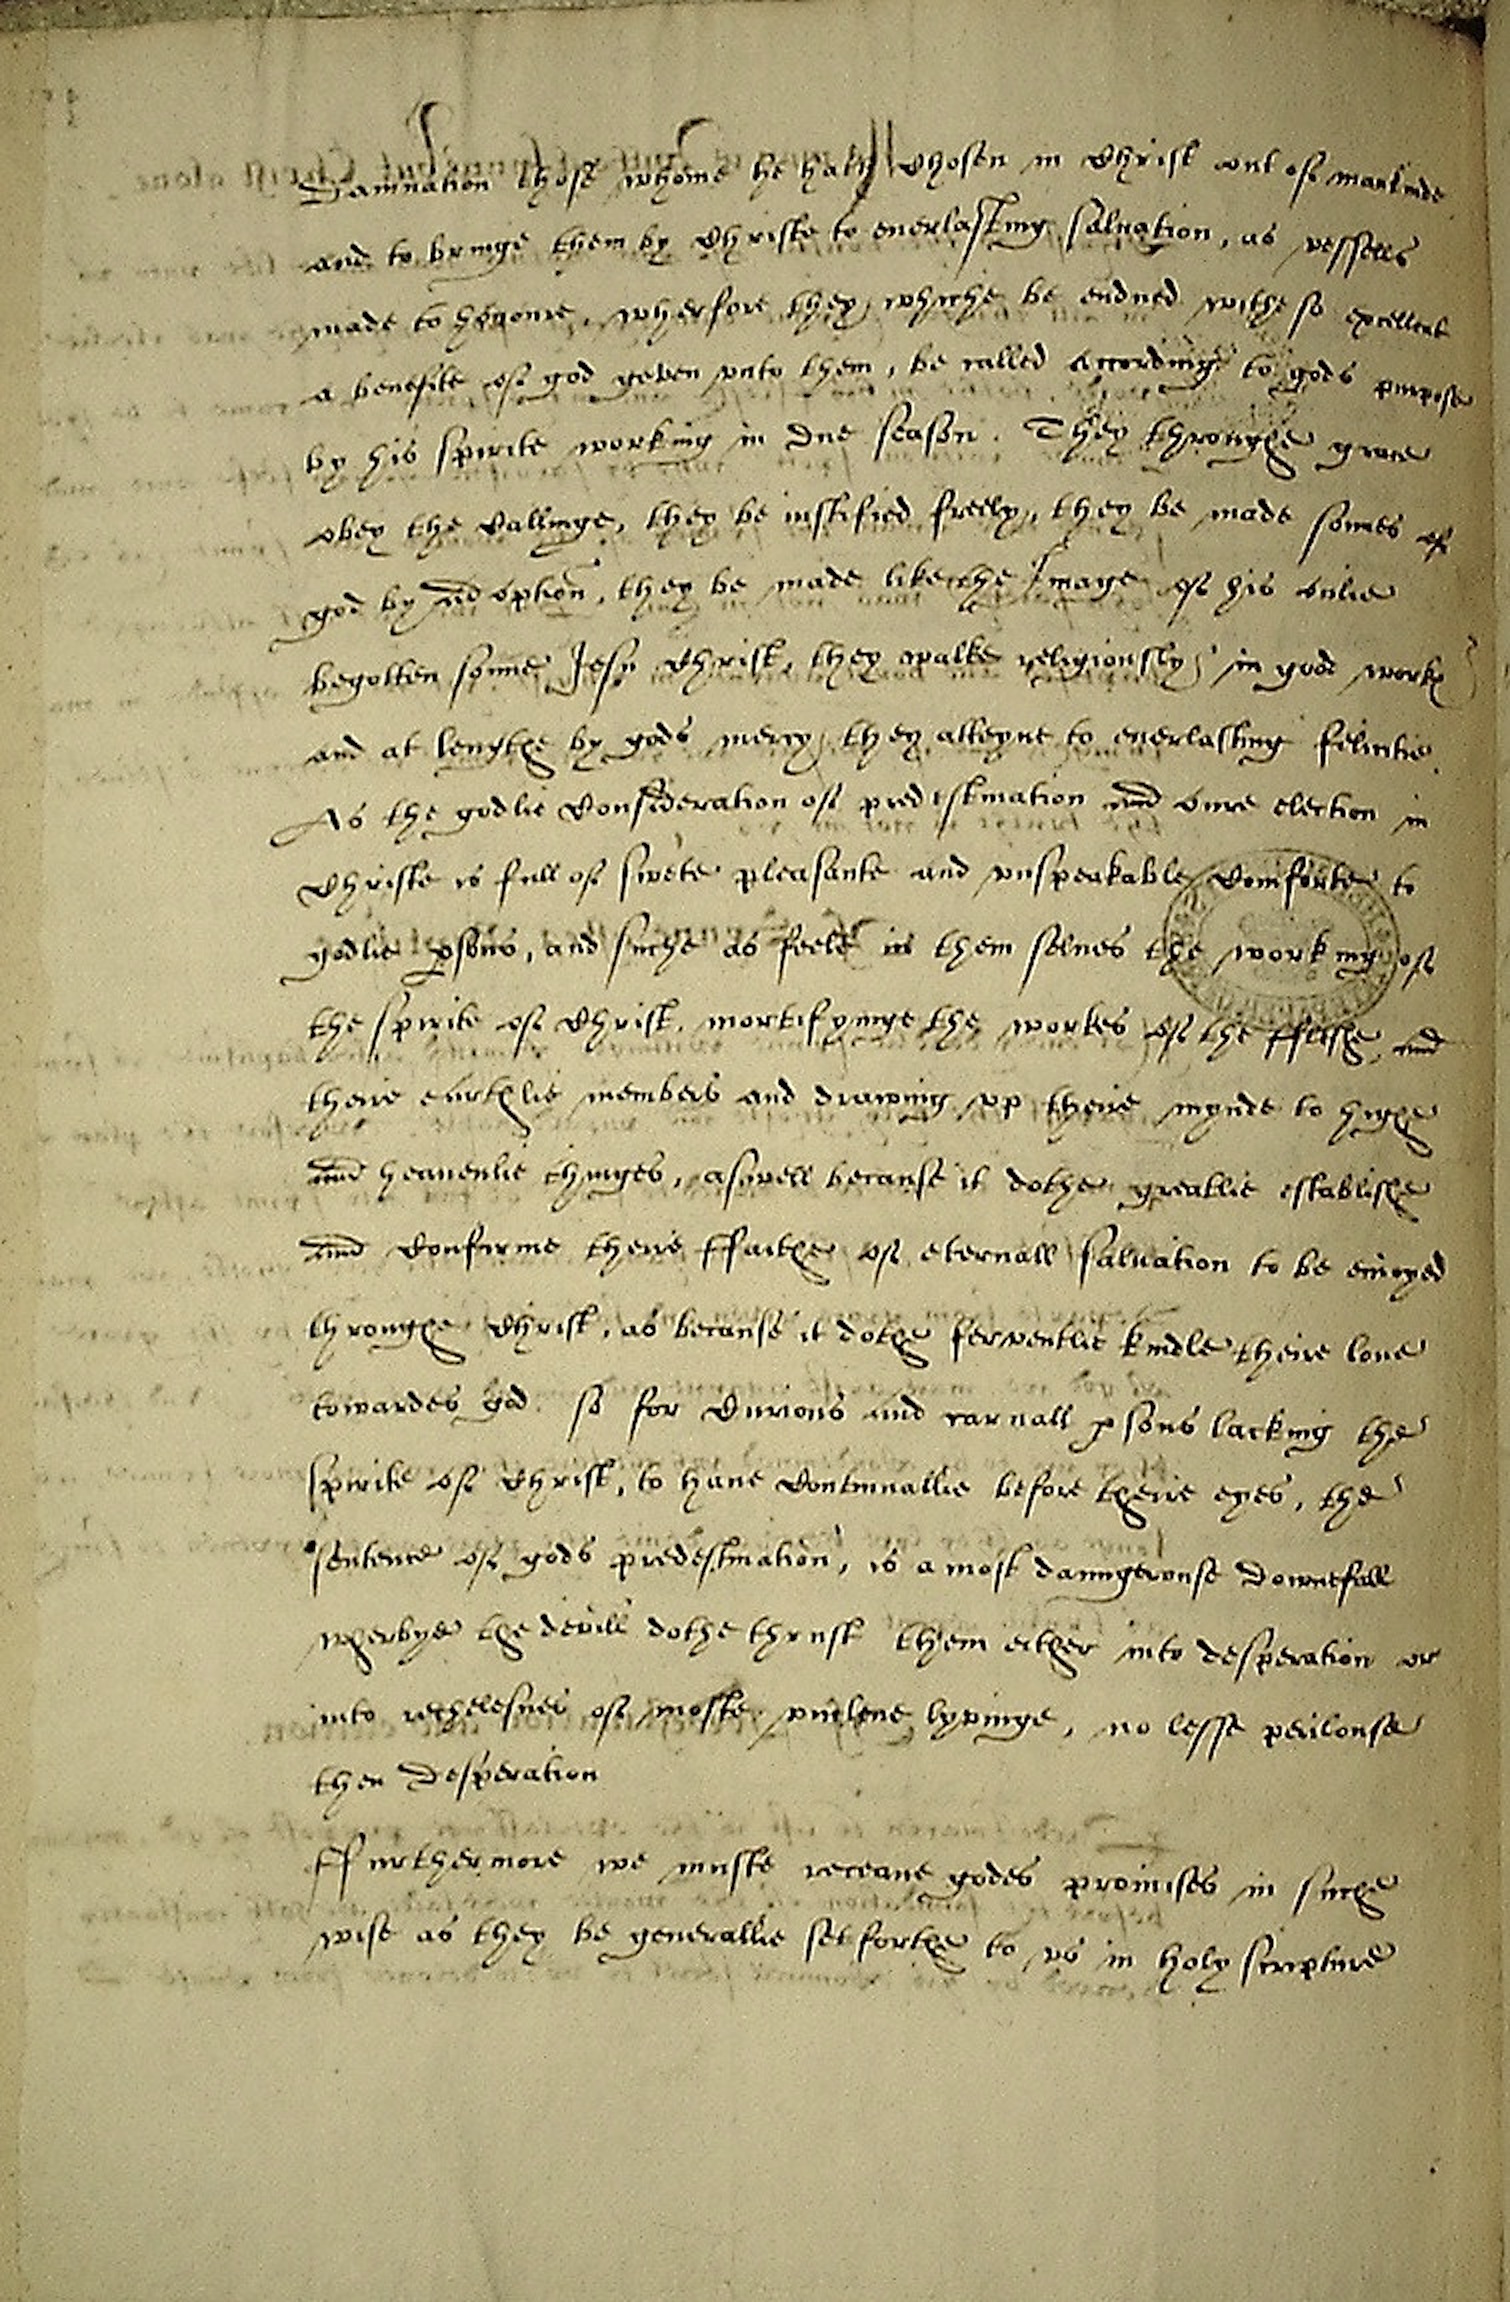 damnation those whome he hath Chosen in Christ out of mankinde
and to bringe them by Christe to euerlasting saluation, as vessells
made to honoure. wherfore they whiche be endued withe so excellent
a benefite of god geven vnto them, be called accordinge to gods purpose
by his spirite working in due season. They throughe grace
obey the Callinge, they be iustified freely, they be made sonnes of
god by adoption, they be made like the Image of his onlie
begotten sonne Jesu Christ, they walke religiously in good workes
and at lengthe by gods mercy they atteyne to euerlasting felicitie.
As the godlie Consideration of predestination and oure election in
Christe is full of swete pleasante and vnspeakable Comforte to
godlie psons, and suche as feele in them selues the working of
the spirite of Christ, mortifyinge the workes of the fflesh, and
theire earthlie members and drawing vp theire mynde to highe
and heauenlie thinges, aswell because it dothe greatlie establishe
and Confirme theire ffaithe of eternall saluation to be enioyed
throughe Christ, as because it dothe ferventlie kindle theire loue
towardes god. so for Curious and carnall psons lacking the
spirite of Christ, to haue Continuallie before theire eyes, the
sentence of gods predestination, is a most daungerouse downefall
wherbye the devill dothe thrust them either into desperation or
into rechelesnes of moste vnclene lyvinge, no lesse perilouse
then desperation
ffurthermore we muste receaue godes promises in suche
wise as they be generallie set forthe to vs in holy scripture